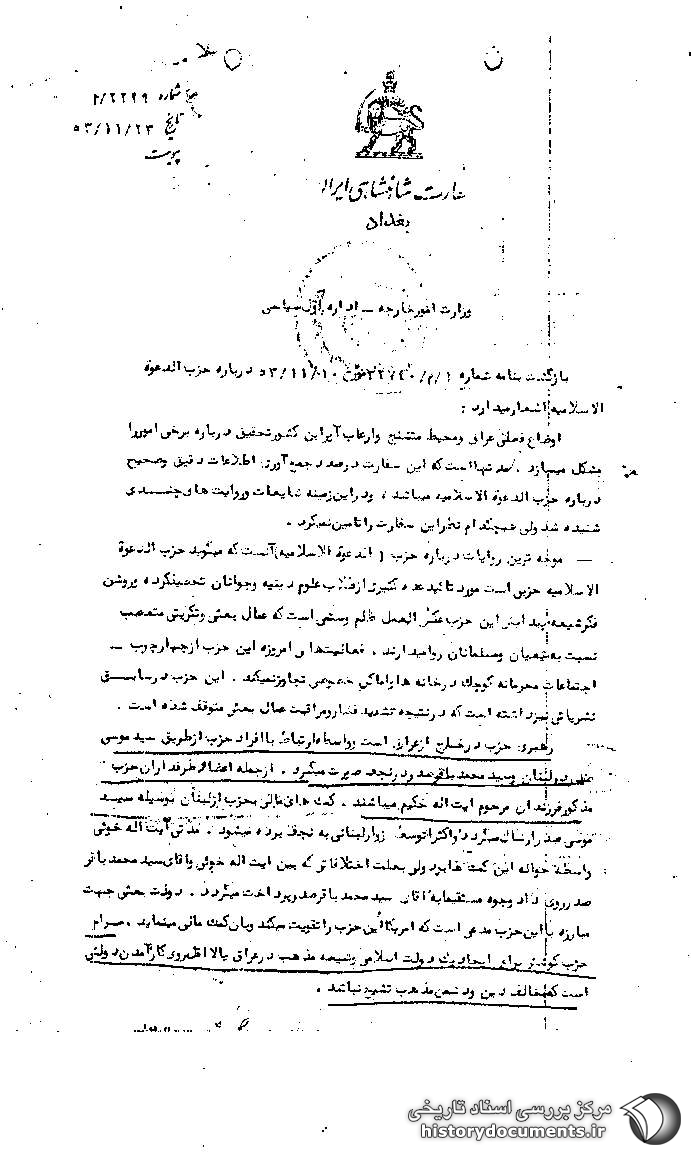 شماره ۲/۲۲۲۹
تاریخ ۵۳/۱۱/۲۳
پیوست
سفارت شاهنشاهی ایران
بغداد
وزارت امور خارجه ـ اداره اول سیاسی
بازگشت بنامه شماره ۱/م/ مورخ ۵۳/۱۱/۱۰ درباره حزب الدعوة
الاسلامیه اشعار میدارد :
اوضاع فعلی عراق و محیط متشنج وارعاب آمیز این کشور تحقیق درباره برخی امور را
مشکل میسازد . مدتها است که این سفارت درصدد جمع آوری اطلاعات دقیق وصحیح
درباره حزب الدعوة الاسلامیه میباشد ، ودراین زمینه شایعات وروایت های چندی
شنیده شد ولی هیچکدام نظر این سفارت را تامین نمیکرد .
ـ موجه ترین روایات درباره حزب ( الدعوة الاسلامیه) آنست که میگوید حزب الدعوة
الاسلامیه حزبی است مورد تائید عده کثیری از طلاب علوم دینیه وجوانان تحصیلکرده وروشن
فکر شیعه این حزب عکس العمل ظلم وستمی است که عمال بعثی وتکریتی متعصب
نسبت به شیعیان ومسلمانان روا میدارند . فعالیتهای امروزه این حزب از چهارچوب ـ
اجتماعات محرمانه کوچک درخانه ها واماکن خصوصی تجاوز نمیکند . این حزب درسابق
نشریاتی نیز داشته است که درنتیجه تشدید فشار ومراقبت عمال بعثی متوقف شده است .
رهبری حزب درخارج از عراق است وواسطه ارتباط با افراد حزب ازطریق سید موسی
صدر در لبنان وسید محمد باقر صدر درنجف صورت میگیرد . ازجمله اعضاء وطرفداران حزب
مذکور فرزندان مرحوم آیت اله حکیم میباشند . کمک های مالی بحزب از لبنان بوسیله سید
موسی صدر ارسال میگردد واکثرا توسط زوار لبنانی به نجف برده میشود . مدتی آیت اله خوئی
واسطه حواله این کمک ها بود ولی بعلت اختلافاتی که بین آیت اله خوئی وآقای سید محمد باقر
صدر روی داد وجوه مستقیما به آقای سید محمد باقر صدر پرداخت میگردد . دولت بعثی جهت
مبارزه با این حزب مدعی است که امریکا این حزب را تقویت میکند وبآن کمک مالی مینماید . مرام
حزب کوشش برای ایجاد یک دولت اسلامی وشیعه مذهب درعراق یا لااقل روی کار آمدن دولتی
است که مخالف دین ودشمن مذهب تشیع نباشد .
مرکز بررسی اسناد تاریخی
historydocuments.ir